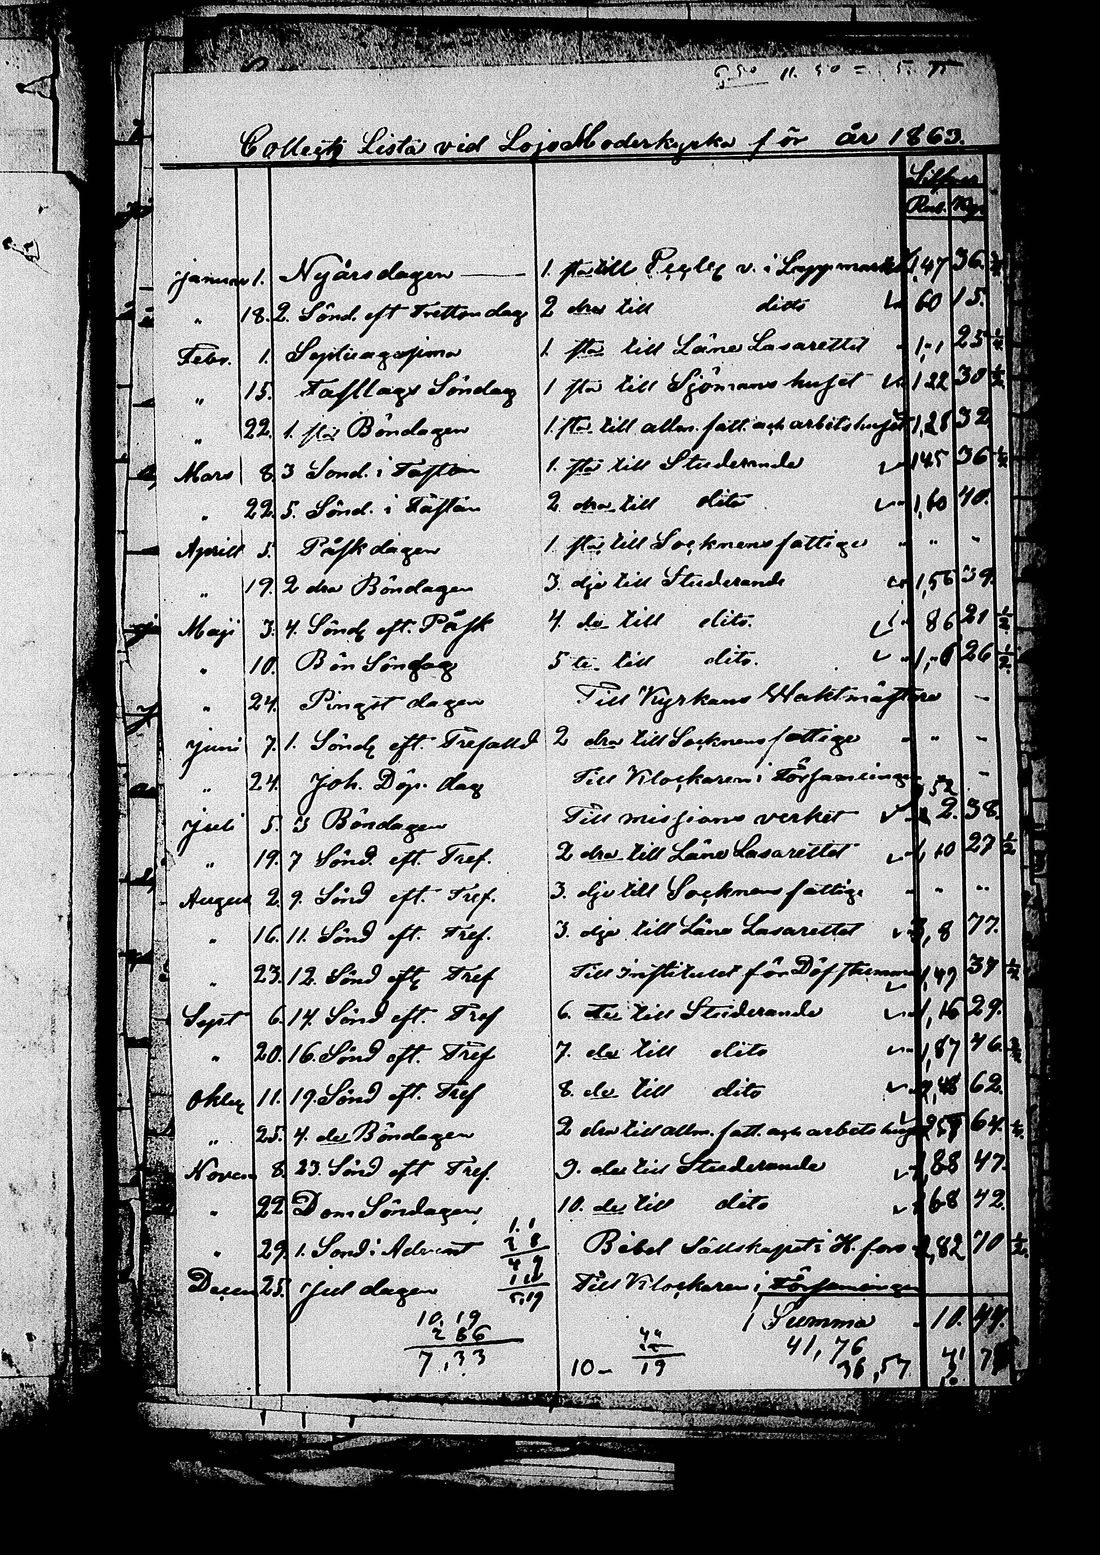 11. 50 =
Collect Lista vid Lojo Moderkyrka för år 1863.
Silfver
Rub. Kop.
Januari 1. Nyårsdagen — 1. sta till v. i Lappmarken 1,47 36.
" 18. 2. Sönd. eft Trettondag 2 dra till ditto 60 15.
Febr. 1. Septuagesima 1. sta till Läns Lasarettet 1,,1 25 1/4
" 15. Fastlags Söndag 1 sta till Sjömanshuset 1,22 30 1/2
" 22. 1. sta Böndagen 1. sta till allm. fatt. och arbetshuset 1,28 32
Mars 8. 3 Sönd. i Fastan 1. sta till Studerande 1,45 36 1/4
" 22. 5. Sönd. i Fastan 2 dra till dito 1,60 40.
Aprill 5. Påskdagen 1. sta till Socknens fattige " "
" 19. 2 dra Böndagen 3. dje till Studerande 1,56 39.
Maji 3. 4. Sönd. eft. Påsk 4. de till dito. 86 21 1/2
" 10. Bön Söndag 5 te. till dito. 1,,6 26 1/2
" 24. Pingst dagen Till Kyrkans Waktmästare –
Juni 7. 1. Sönd. eft. Trefald 2 dra till Socknens fattige " " –
" 24. Joh. Döp. dag Till Klockaren i Församlingen –
1,52
Juli 5. 3 Böndagen Till missions verket 2. 38.
" 19. 7 Sönd. eft. Tref. 2 dra till Läns Lasarettet 1,10 27 1/2
August 2. 9. Sönd eft. Tref. 3. dje till Socknens fattige " " "
" 16. 11. Sönd eft. Tref. 3. dje till Läns Lasarettet 3,,8 77.
" 23. 12. Sönd eft Tref Till institutet för Döfstumma 1,49 37 1/2
Sept 6. 14. Sönd eft. Tref 6. te till Studerande 1,16 29.
" 20. 16. Sönd eft. Tref 7. de till dito 1,87 46
Oktob 11. 19. Sönd eft. Tref 8. de till dito 2,48 62.
" 25. 4. de Böndagen 2 dra till allm. fatt. och arbetshuset 64. 1/4
Novem 8. 23. Sönd eft Tref. 9. de till Studerande 1,88 47.
" 22 Dom Söndagen 10. de till dito 1,68 42.
" 29. 1. Sönd i Advent Bibel Sällskapet i H.fors 2,82 70 1/2
Decem 25. Jul dagen Till Klockaren i Församlingen
5,19
Summa 10.
10,19
2 86
7,33
41,76
36,57
10 –
19